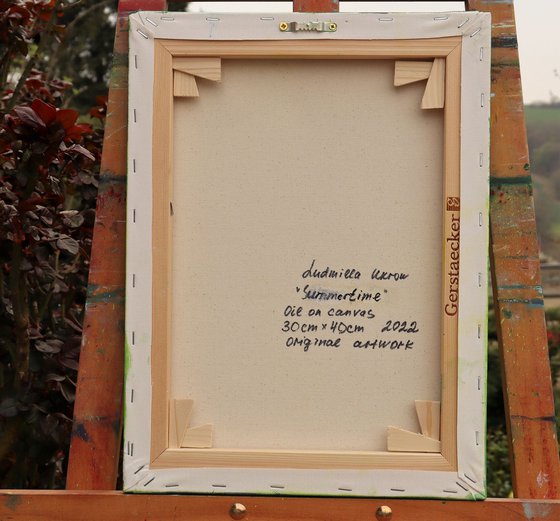 Ludmilla Ukrow
"Summertime"
Oil on canvas
30cm x 40cm 2022
Original artwork
Gerstaecker